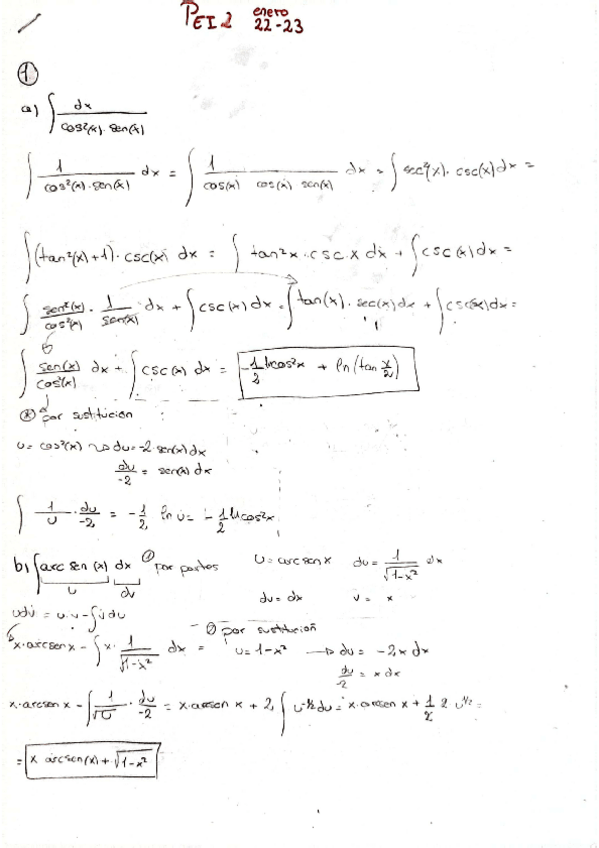 PEI 2 enero 22-23
1
a) ∫ dx / cos²(x)·sen(x)
∫ 1 / cos²(x)·sen(x) dx = ∫ 1 / cos(x) cos(x) sen(x) dx = ∫ sec²(x)·csc(x) dx =
∫ (tan²(x)+1)·csc(x) dx = ∫ tan²x·csc x dx + ∫ csc(x) dx =
∫ sen²(x)/cos²(x) · 1/sen(x) dx + ∫ csc(x) dx = ∫ tan(x)·sec(x) dx + ∫ csc(x) dx =
∫ sen(x)/cos²(x) dx + ∫ csc(x) dx = -1/2 ln cos²x + ln(tan x/2)
* por sustitucion
u = cos²(x) → du = -2 sen(x) dx
du/-2 = sen(x) dx
∫ 1/u · du/-2 = -1/2 ln u = -1/2 ln cos²x
b) ∫ arc sen (x) dx por partes u = arcsen x du = 1/√1-x² dx
u dv dv = dx v = x
udv = u·v - ∫ v du
x·arcsen x - ∫ x· 1/√1-x² dx = por sustitución u = 1-x² → du = -2x dx
du/-2 = x dx
x·arcsen x - ∫ 1/√u · du/-2 = x·arcsen x + 2 ∫ u^-1/2 du = x·arcsen x + 1/2 2 u^1/2 =
= x arcsen(x) + √1-x²